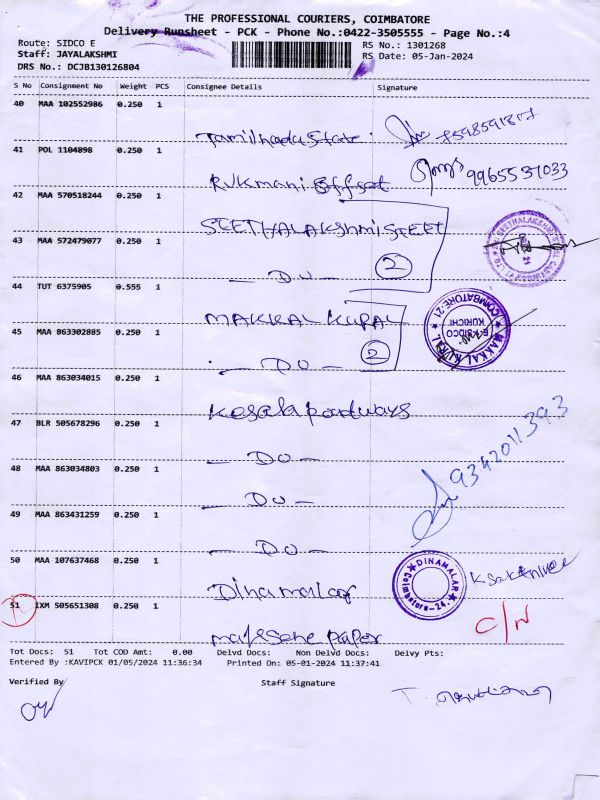 THE PROFESSIONAL COURIERS, COIMBATORE
Delivery Runsheet - PCK - Phone No.:0422-3505555 - Page No.:4
Route: SIDCO E
RS No.: 1301268
Staff: JAYALAKSHMI
RS Date: 05-Jan-2024
DRS No.: DCJB130126804
S No Consignment No Weight PCS Consignee Details Signature
40 MAA 102552986 0.250 1
Tamilnadu State
41 POL 1104898 0.250 1
Rukmani Offset 9965537033
42 MAA 570518244 0.250 1
SEETHALAKSHMI STEEL
43 MAA 572479077 0.250 1
- DO - 2
44 TUT 6375905 0.555 1
MAKKAL KURAL
MAKKAL KURAL
E-SIDCO
KURICHI
COIMBATORE-21
45 MAA 863302885 0.250 1
- DO - 2
46 MAA 863034015 0.250 1
Kerala
47 BLR 505678296 0.250 1
- DO -
9342011393
48 MAA 863034803 0.250 1
- DO -
49 MAA 863431259 0.250 1
- DO -
50 MAA 107637468 0.250 1
Dinamalar
DINAMALAR
Coimbatore-24.
51 IXM 505651308 0.250 1
Paper
C/N
Tot Docs: 51 Tot COD Amt: 0.00 Delvd Docs: Non Delvd Docs: Deivy Pts:
Entered By :KAVIPCK 01/05/2024 11:36:34 Printed On: 05-01-2024 11:37:41
Verified By Staff Signature